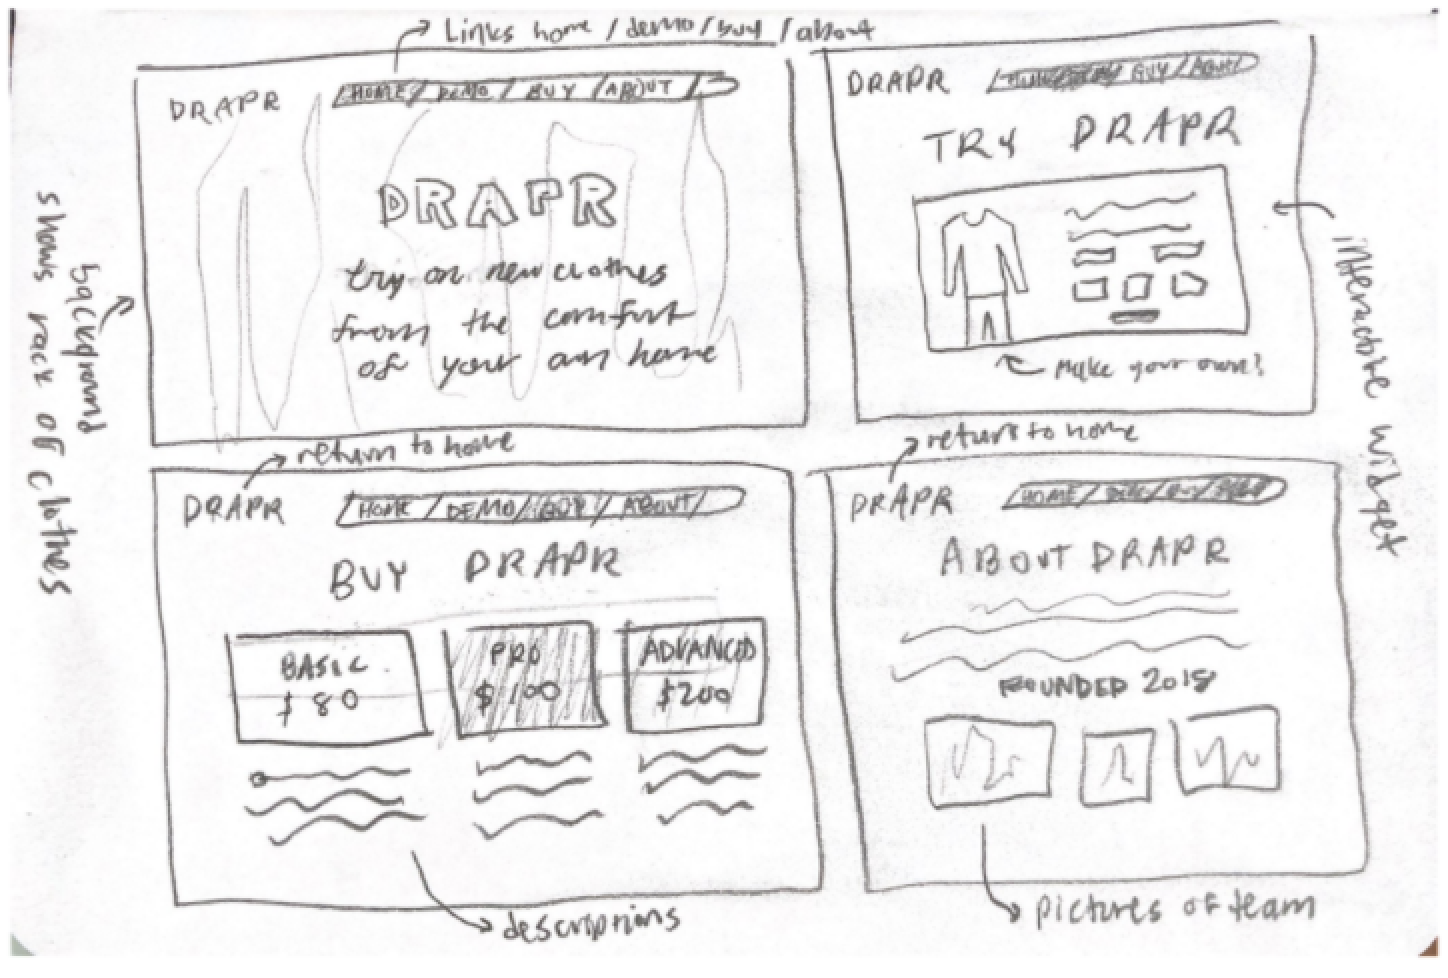 Links home / demo / buy / about
DRAPR
HOME / DEMO / BUY / ABOUT /
DRAPR
try on new clothes
from the comfort
of your own home
background
shows rack of clothes
DRAPR
BUY / ABOUT
TRY DRAPR
Make your own!
interactive widget
return to home
DRAPR
HOME / DEMO / BUY / ABOUT /
BUY DRAPR
BASIC
$80
PRO
$100
ADVANCED
$200
descriptions
return to home
DRAPR
HOME /
ABOUT DRAPR
FOUNDED 2018
pictures of team